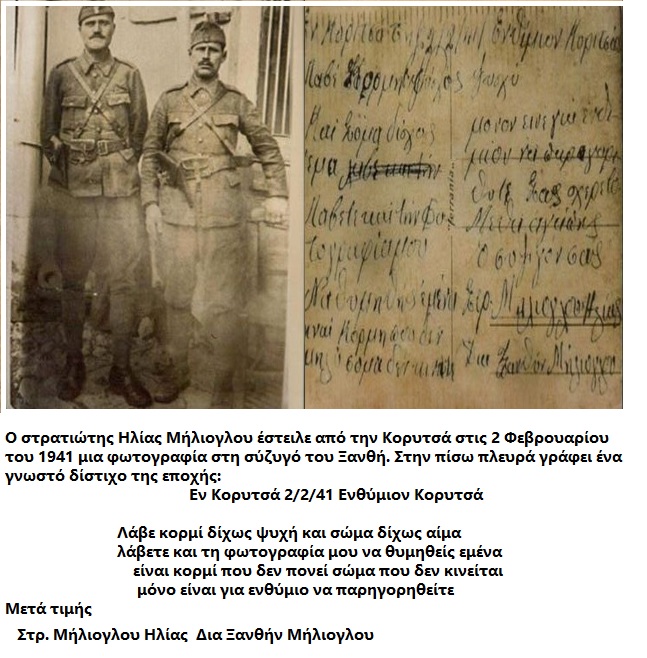 Κοριτσα 2/2/41 Ενθύμιον Κοριτσάς
Λαβε Κορμη δήχος ψυχή
Και Σόμα δίχος
εμα
Λαβετε και την Φο
τογραφία μου
Να θυμηθης εμένα
Κορμη που δεν
σομα δεν
μονον εινε για ενθι
μιον να παριγορι
θιτε Σας χερετο
Μετα
σας
Στρ. Μηλιογλου Ηλιας
Δια Ξανθήν Μήλιογλου
Ο στρατιώτης Ηλίας Μήλιογλου έστειλε από την Κορυτσά στις 2 Φεβρουαρίου
του 1941 μια φωτογραφία στη σύζυγό του Ξανθή. Στην πίσω πλευρά γράφει ένα
γνωστό δίστιχο της εποχής:
Εν Κορυτσά 2/2/41 Ενθύμιον Κορυτσά
Λάβε κορμί δίχως ψυχή και σώμα δίχως αίμα
λάβετε και τη φωτογραφία μου να θυμηθείς εμένα
είναι κορμί που δεν πονεί σώμα που δεν κινείται
μόνο είναι για ενθύμιο να παρηγορηθείτε
Μετά τιμής
Στρ. Μήλιογλου Ηλίας  Δια Ξανθήν Μήλιογλου